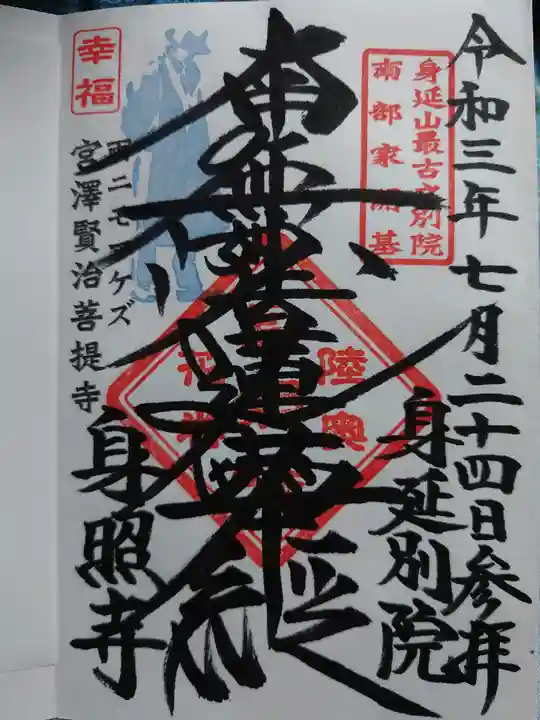 令和三年七月二十四日参拝
身延山最古之別院
南部家開基
身延別院
陸奥
南無妙法蓮華経
幸福
雨ニモマケズ
宮澤賢治菩提寺
身照寺